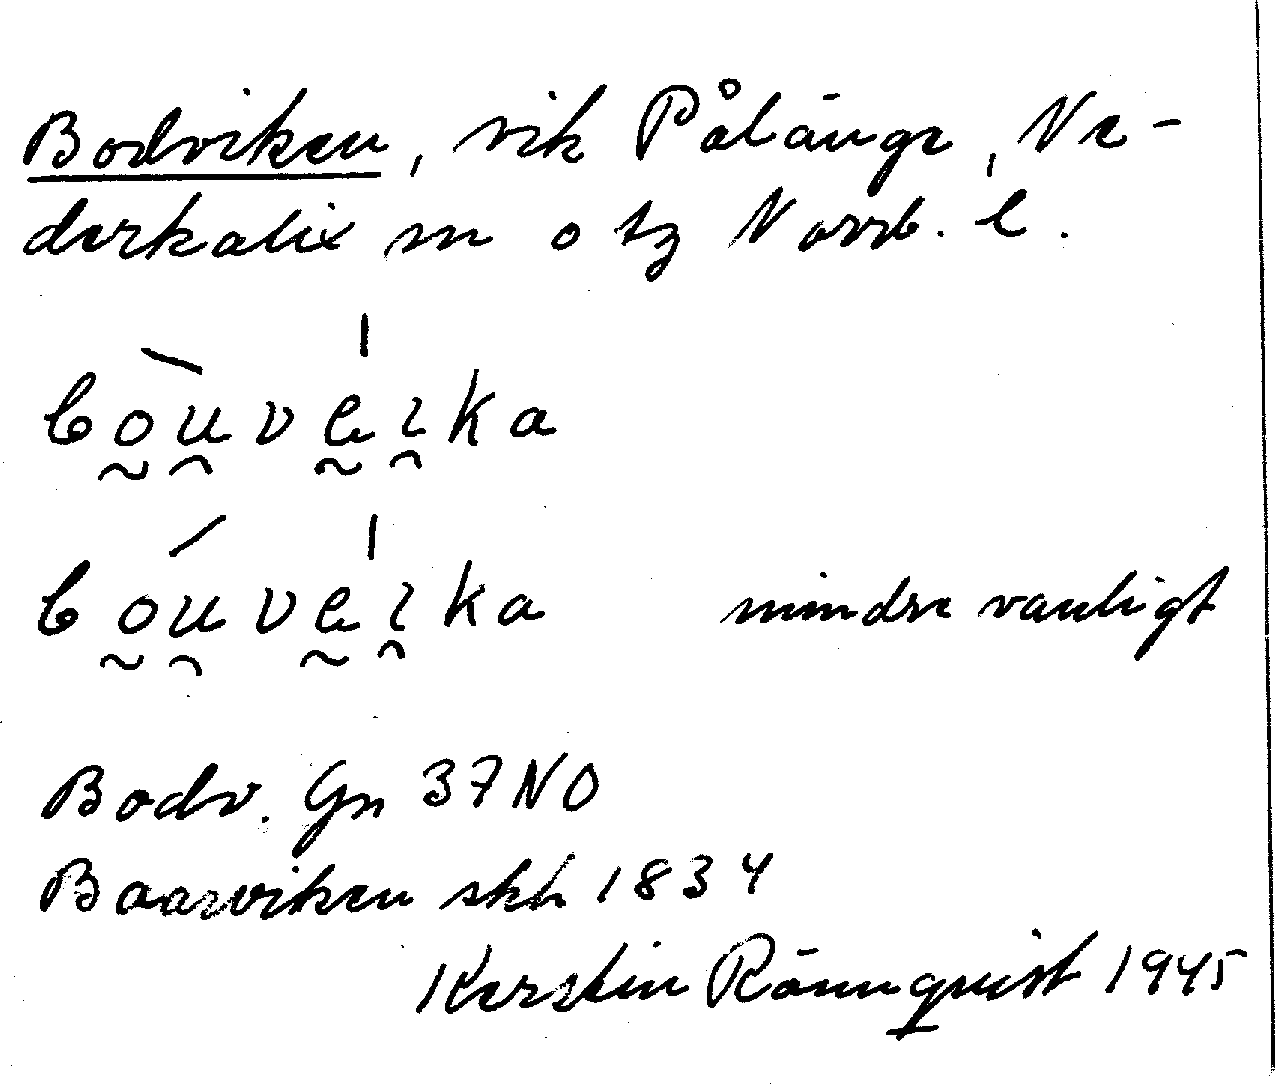 Bodviken, vik Pålänge, Ne-
derkalix sn o tg Norrb. l.
bòu̯vḛ́ɩ̯ka
bóu̯vḛ́ɩ̯ka mindre vanligt
Bodv. Gn 37 NO
Baarviken skh 1834
Kerstin Rönnquist 1945